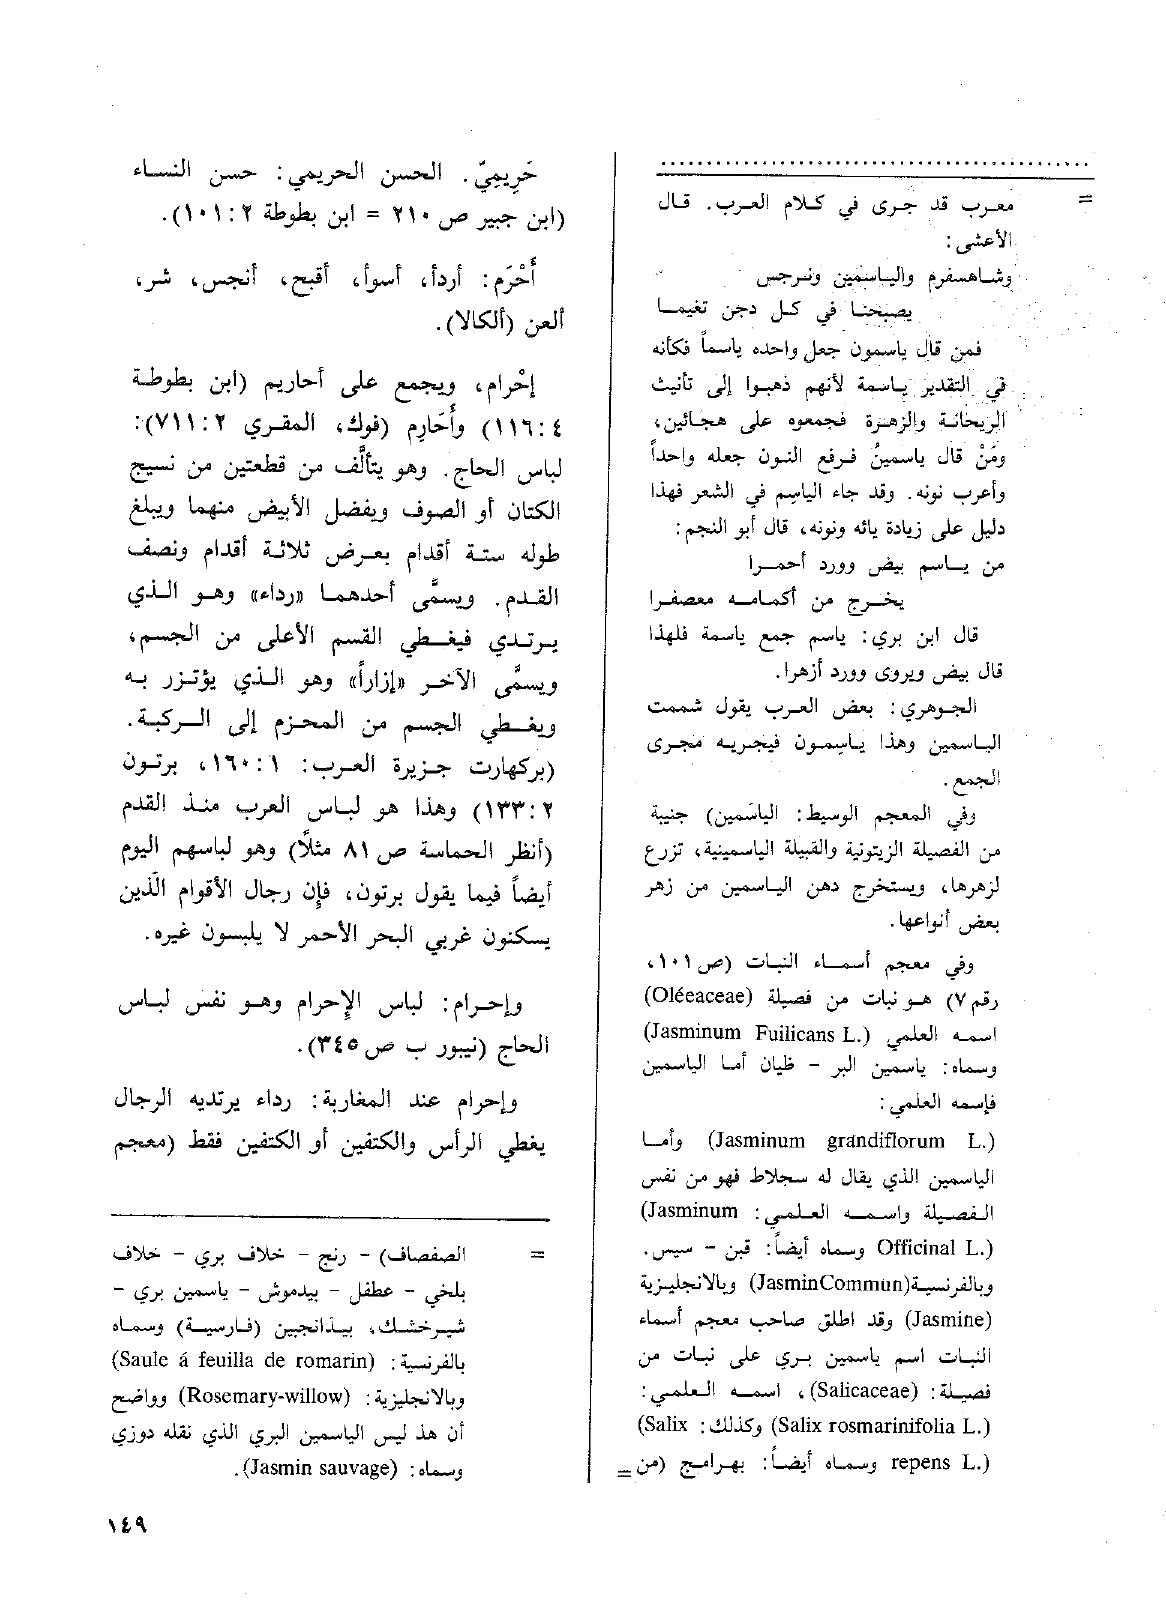 ..........................................
= معرب قد جرى في كلام العرب. قال
الأعشى:
وشاهسفرم والياسمين ونرجس
يصبحنا في كل دجن تغيما
فمن قال ياسمون جعل واحده ياسماً فكأنه
في التقدير ياسمة لأنهم ذهبوا إلى تأنيث
الريحانة والزهرة فجمعوه على هجائين،
ومَنْ قال ياسمينُ فرفع النون جعله واحداً
وأعرب نونه. وقد جاء الياسِم في الشعر فهذا
دليل على زيادة يائه ونونه، قال أبو النجم:
من ياسم بيض وورد أحمرا
يخرج من أكمامه معصفرا
قال ابن بري: ياسم جمع ياسمة فلهذا
قال بيض ويروى وورد أزهرا.
الجوهري: بعض العرب يقول شممت
الياسمين وهذا ياسِمون فيجريه مجرى
الجمع.
وفي المعجم الوسيط: الياسَمين) جنيبة
من الفصيلة الزيتونية والقبيلة الياسمينية، تزرع
لزهرها، ويستخرج دهن الياسمين من زهر
بعض أنواعها.
وفي معجم أسماء النبات (ص١٠١،
رقم ٧) هو نبات من فصيلة (Oléaceae)
اسمه العلمي (Jasminum Fuilicans L.)
وسماه: ياسمين البر - ظيان أما الياسمين
فإسمه العلمي:
(Jasminum grandiflorum L.) وأما
الياسمين الذي يقال له سجلاط فهو من نفس
الفصيلة واسمه العلمي: (Jasminum
Officinal L.) وسماه أيضاً: قبن - سيس.
وبالفرنسية(JasminCommun) وبالانجليزية
(Jasmine) وقد اطلق صاحب معجم أسماء
النبات اسم ياسمين بري على نبات من
فصيلة: (Salicaceae)، اسمه العلمي:
(Salix rosmarinifolia L.) وكذلك: (Salix
repens L.) وسماه أيضاً: بهرامج (من =
حَرِيمِيّ. الحسن الحريمي: حسن النساء
(ابن جبير ص ٢١٠ = ابن بطوطة ٢: ١٠١).
أَحْرَم: أردأ، أسوأ، أقبح، أنجس، شر،
ألعن (ألكالا).
إحْرام، ويجمع على أحاريم (ابن بطوطة
٤: ١١٦) وأَحَارِم (فوك، المقري ٢: ٧١١):
لباس الحاج. وهو يتألَّف من قطعتين من نسيج
الكتان أو الصوف ويفضل الأبيض منهما ويبلغ
طوله ستة أقدام بعرض ثلاثة أقدام ونصف
القدم. ويسمَّى أحدهما «رداء» وهو الذي
يرتدي فيغطي القسم الأعلى من الجسم،
ويسمَّى الآخر «إزاراً» وهو الذي يؤتزر به
ويغطي الجسم من المحزم إلى الركبة.
(بركهارت جزيرة العرب: ١: ١٦٠، برتون
٢: ١٣٣) وهذا هو لباس العرب منذ القدم
(أنظر الحماسة ص ٨١ مثلاً) وهو لباسهم اليوم
أيضاً فيما يقول برتون، فإن رجال الأقوام الَّذين
يسكنون غربي البحر الأحمر لا يلبسون غيره.
وإحرام: لباس الإحرام وهو نفس لباس
الحاج (نيبور ب ص ٣٤٥).
وإحرام عند المغاربة: رداء يرتديه الرجال
يغطي الرأس والكتفين أو الكتفين فقط (معجم
= الصفصاف) - رنج - خلاف بري - خلاف
بلخي - عطفل - بيدموش - ياسمين بري -
شيرخشك، بيذانجبين (فارسية) وسماه
بالفرنسية: (Saule á feuilla de romarin)
وبالانجليزية: (Rosemary-willow) وواضح
أن هذ ليس الياسمين البري الذي نقله دوزي
وسماه: (Jasmin sauvage).
١٤٩